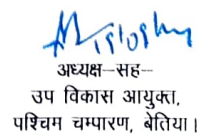 अध्यक्ष-सह-
उप विकास आयुक्त,
पश्चिम चम्पारण, बेतिया।